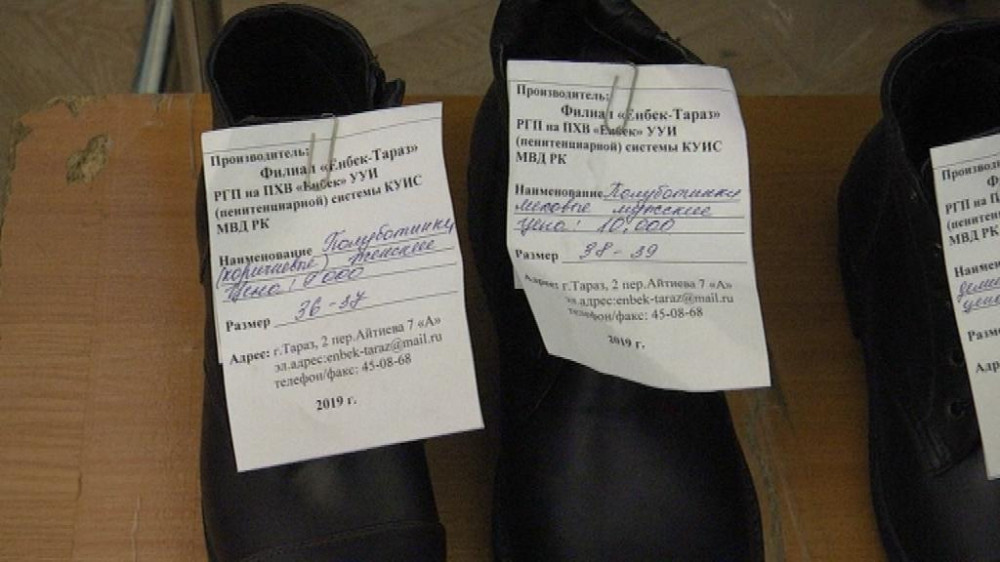 Производитель:
Филиал «Еңбек-Тараз»
РГП на ПХВ «Еңбек» УУИ
(пенитенциарной) системы КУИС
МВД РК
Наименование Полуботинки
(коричневые) женские
Цена: 9000
Размер 36-37
Адрес: г.Тараз, 2 пер.Айтиева 7 «А»
эл.адрес:enbek-taraz@mail.ru
телефон/факс: 45-08-68
2019 г.
Производитель:
Филиал «Еңбек-Тараз»
РГП на ПХВ «Еңбек» УУИ
(пенитенциарной) системы КУИС
МВД РК
Наименование Полуботинки
меховые мужские
Цена: 10,000
Размер 38-39
Адрес: г.Тараз, 2 пер.Айтиева 7 «А»
эл.адрес:enbek-taraz@mail.ru
телефон/факс: 45-08-68
2019 г.
Производ
Ф
РГП на П
(пенитен
МВД РК
Наимен
Разм
Адр